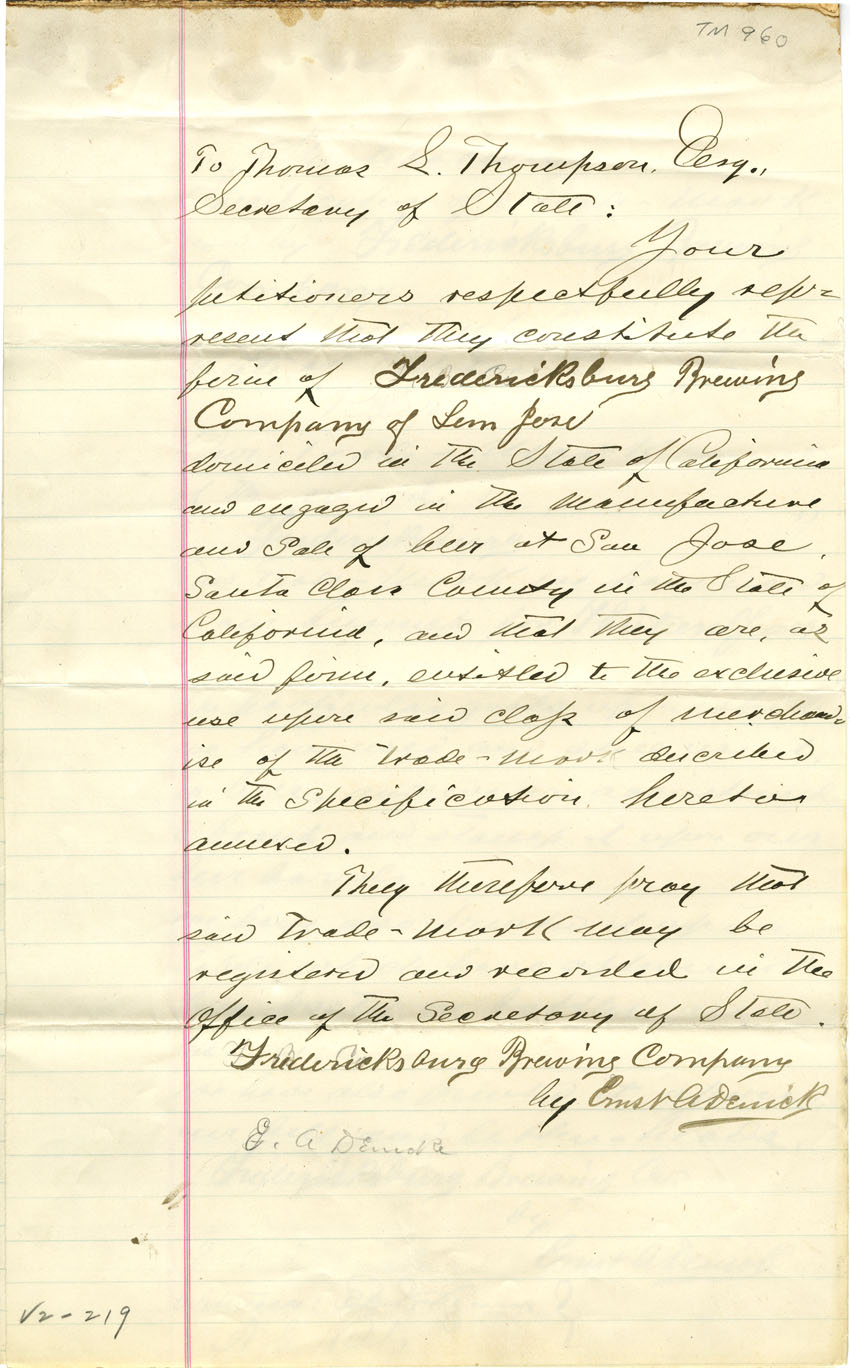 TM 960
To Thomas L. Thompson, Esq.,
Secretary of State:
Your
petitioners respectfully rep=
resent that they constitute the
firm of Fredericksburg Brewing
Company of San José
domiciled in the State of California
and engaged in the Manufacture
and Sale of beer at San Jose,
Santa Clara County in the State of
California, and that they are, as
said firm, entitled to the exclusive
use upon said class of merchand=
ise of the Trade-Mark described
in the Specification hereto
annexed.
They therefore pray that
said Trade-Mark may be
registered and recorded in the
Office of the Secretary of State.
Fredericksburg Brewing Company
by Ernst A Denicke
E. A Denicke
V2-219